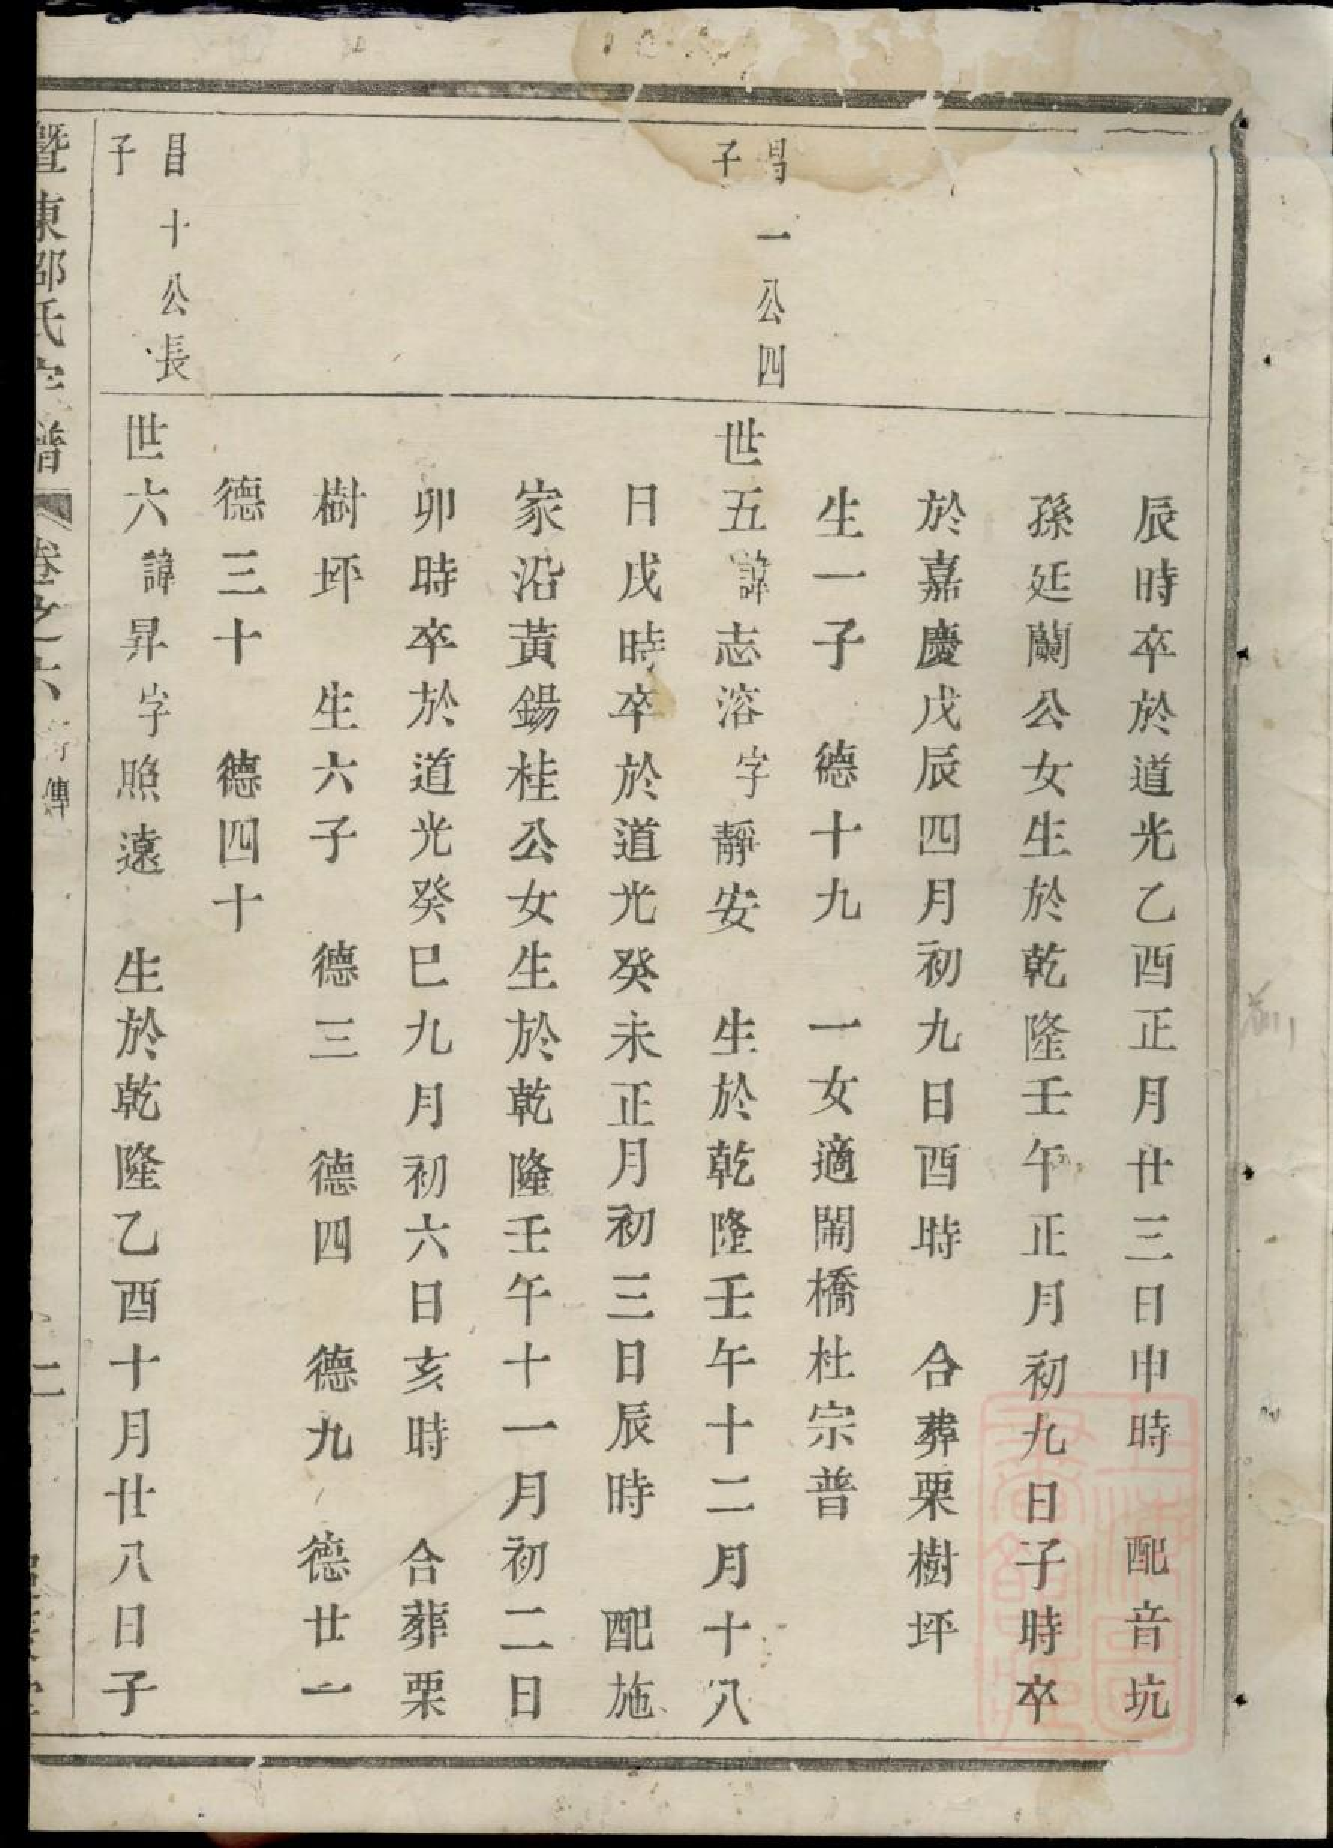 辰時卒於道光乙酉正月廿三日申時　配音坑
孫廷蘭公女生於乾隆壬午正月初九日子時卒
於嘉慶戊辰四月初九日酉時　合葬栗樹坪
生一子　德十九　一女適鬧橋杜宗普
昌一公四
子
世五諱志溶字靜安　生於乾隆壬午十二月十八
日戌時卒於道光癸未正月初三日辰時　配施
家沿黃鍚桂公女生於乾隆壬午十一月初二日
卯時卒於道光癸巳九月初六日亥時　合葬栗
樹坪　生六子　德三　德四　德九　德廿一
德三十　德四十
昌十公長
子
世六諱昇字照遠　生於乾隆乙酉十月廿八日子
暨東邵氏宗譜　卷之六　行傳